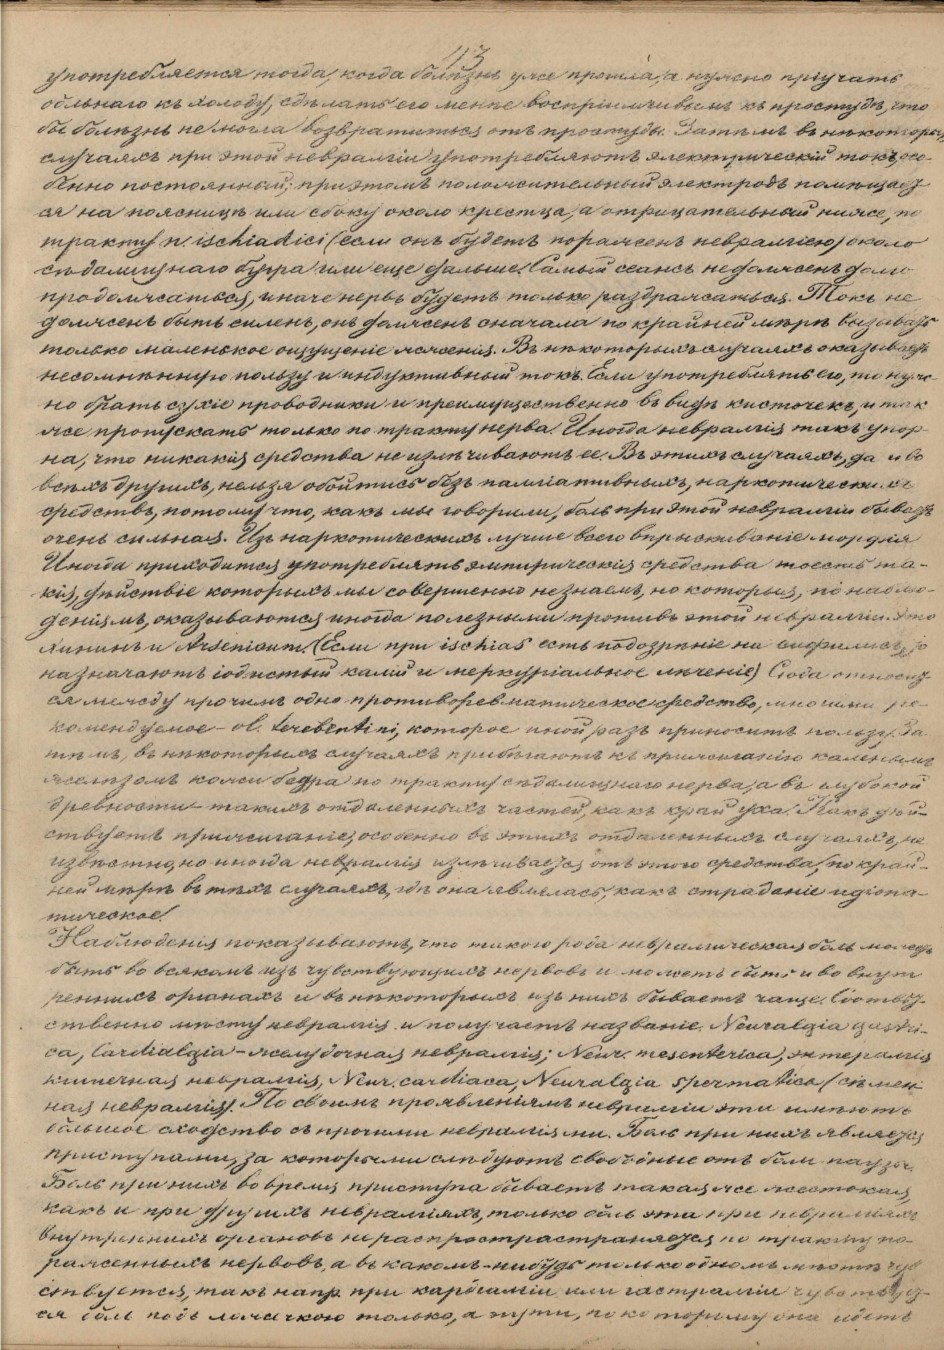 113
употребляется тогда, когда болѣзнь уже прошла, а нужно пріучать
больнаго къ холоду, сдѣлать его менѣе воспріимчивымъ къ простудѣ, что
бы болѣзнь не могла возвратиться отъ простуды. Затѣмъ въ нѣкоторых
случаяхъ при этой невралгіи употребляютъ электрическій токъ, осо-
бенно постоянный; при этомъ положительный электродъ помѣщает
ся на поясницѣ или сбоку около крестца, а отрицательный ниже, по
тракту n. ischiadici (если онъ будетъ пораженъ невралгіею) около
сѣдалищнаго бугра или еще дальше. Самый сеансъ не долженъ долго
продолжаться, иначе нервъ будетъ только раздражаться. Токъ не
долженъ быть силенъ, онъ долженъ сначала по крайней мѣрѣ вызывать
только маленькое ощущеніе жженія. Въ нѣкоторыхъ случаяхъ оказываетъ
несомнѣнную пользу и индуктивный токъ. Если употреблять его, то нуж-
но брать сухіе проводники и преимущественно въ видѣ кисточекъ, и так
же пропускать только по тракту нерва. Иногда невралгія такъ упор-
на, что никакія средства не излѣчиваютъ ее. Въ этихъ случаяхъ, да и во
всѣхъ другихъ, нельзя обойтись безъ палліативныхъ, наркотическихъ
средствъ, потому что, какъ мы говорили, боль при этой невралгіи бываетъ
очень сильная. Изъ наркотическихъ лучше всего впрыскиваніе морфія
Иногда приходится употреблять эмпирическія средства то есть та-
кія, дѣйствіе которыхъ мы совершенно не знаемъ, но которыя, по наблю-
деніямъ, оказываются иногда полезными противъ этой невралгіи. Это
хининъ и Arsenicum. (Если при ischias есть подозрѣніе на сифилисъ, то
назначаютъ іодистый калій и меркуріальное лѣченіе) Сюда относит
ся между прочимъ одно противоревматическое средство, многими ре-
комендуемое - ol. terebentini, которое иной разъ приноситъ пользу. За
тѣмъ, въ нѣкоторыхъ случаяхъ прибѣгаютъ къ прижиганію каленымъ
желѣзомъ кожи бедра по тракту сѣдалищнаго нерва, а въ глубокой
древности - такихъ отдаленныхъ частей, какъ край уха. Какъ дѣй-
ствуетъ прижиганіе, особенно въ этихъ отдаленныхъ случаяхъ, не
извѣстно, но иногда невралгія излѣчивается отъ этого средства, по край-
ней мѣрѣ въ тѣхъ случаяхъ, гдѣ она являлась, какъ страданіе идіопа-
тическое.
Наблюденія показываютъ, что такого рода невралгическая боль можетъ
быть во всякомъ изъ чувствующихъ нервовъ и можетъ быть и во внут
реннихъ органахъ и въ нѣкоторыхъ изъ нихъ бываетъ чаще. Соотвѣт-
ственно мѣсту невралгія и получаетъ названіе. Neuralgia gastri-
ca, Cardialgia - желудочная невралгія; Neur. mesenterica, энтералгія
кишечная невралгія, Neur. cardiaca, Neuralgia spermatica (сѣмен
ная невралгія). По своимъ проявленіямъ невралгіи эти имѣютъ
большое сходство съ прочими невралгіями. Боль при нихъ является
приступами, за которыми слѣдуютъ свободные отъ боли паузы.
Боль при нихъ во время приступа бываетъ такая же жестокая,
какъ и при другихъ невралгіяхъ, только боль эта при невралгіяхъ
внутреннихъ органовъ не распространяется по тракту по-
раженныхъ нервовъ, а въ какомъ-нибудь только одномъ мѣстѣ чув
ствуется, такъ напр. при кардіалгіи или гастралгіи чувствует-
ся боль подъ ложечкою только, а пути, по которому она идетъ